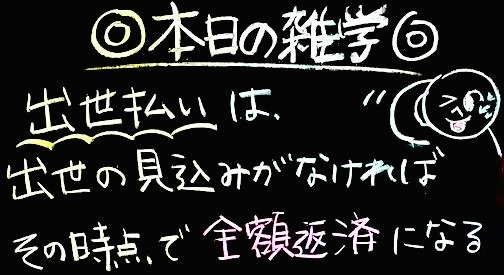 ◎本日の雑学◎
出世払いは、
出世の見込みがなければ
その時点で全額返済になる